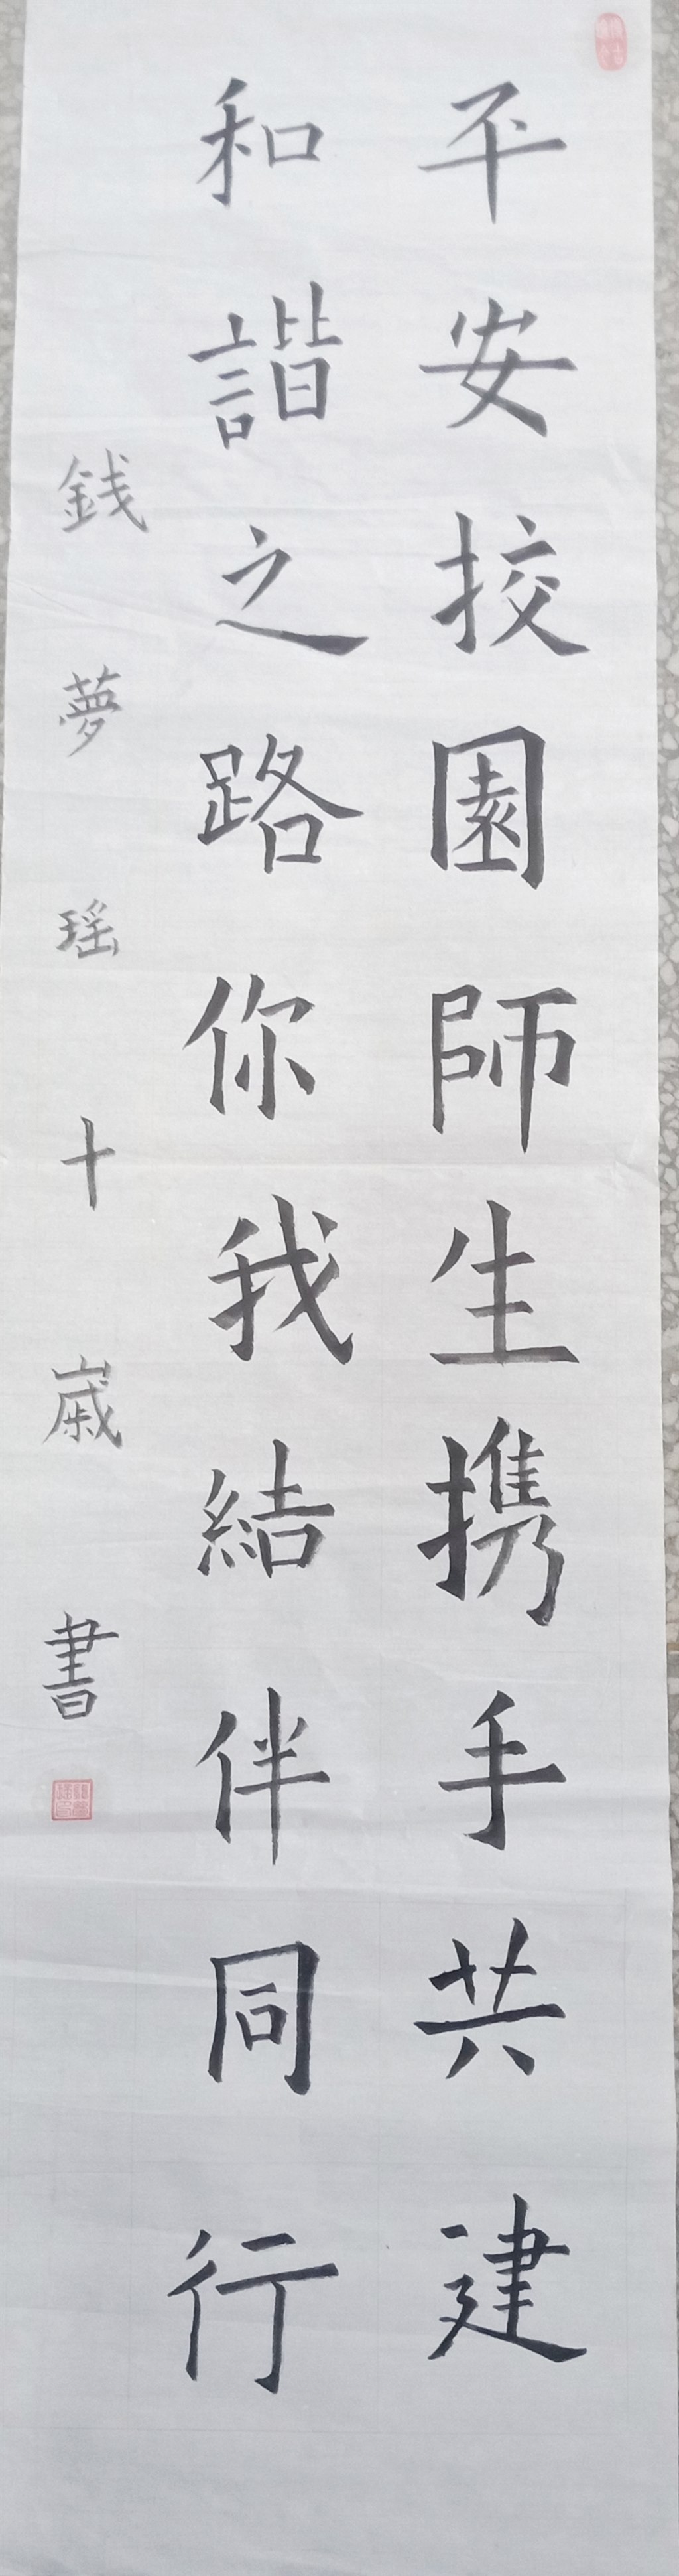 平安挍園師生携手共建
和諧之路你我結伴同行
銭夢瑶十歳書